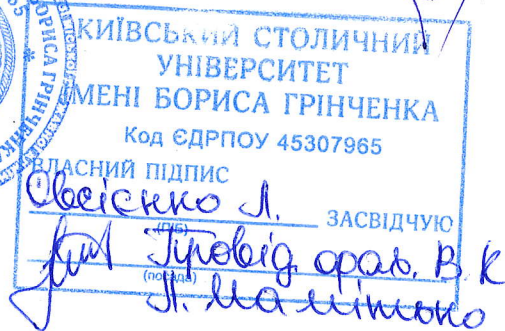 КИЇВСЬКИЙ СТОЛИЧНИЙ
УНІВЕРСИТЕТ
ІМЕНІ БОРИСА ГРІНЧЕНКА
Код ЄДРПОУ 45307965
ВЛАСНИЙ ПІДПИС
Овсієнко Л.
(ПІБ)
ЗАСВІДЧУЮ
Провід. фах. В К
(посада)
БОРИСА ГРІНЧЕНКА